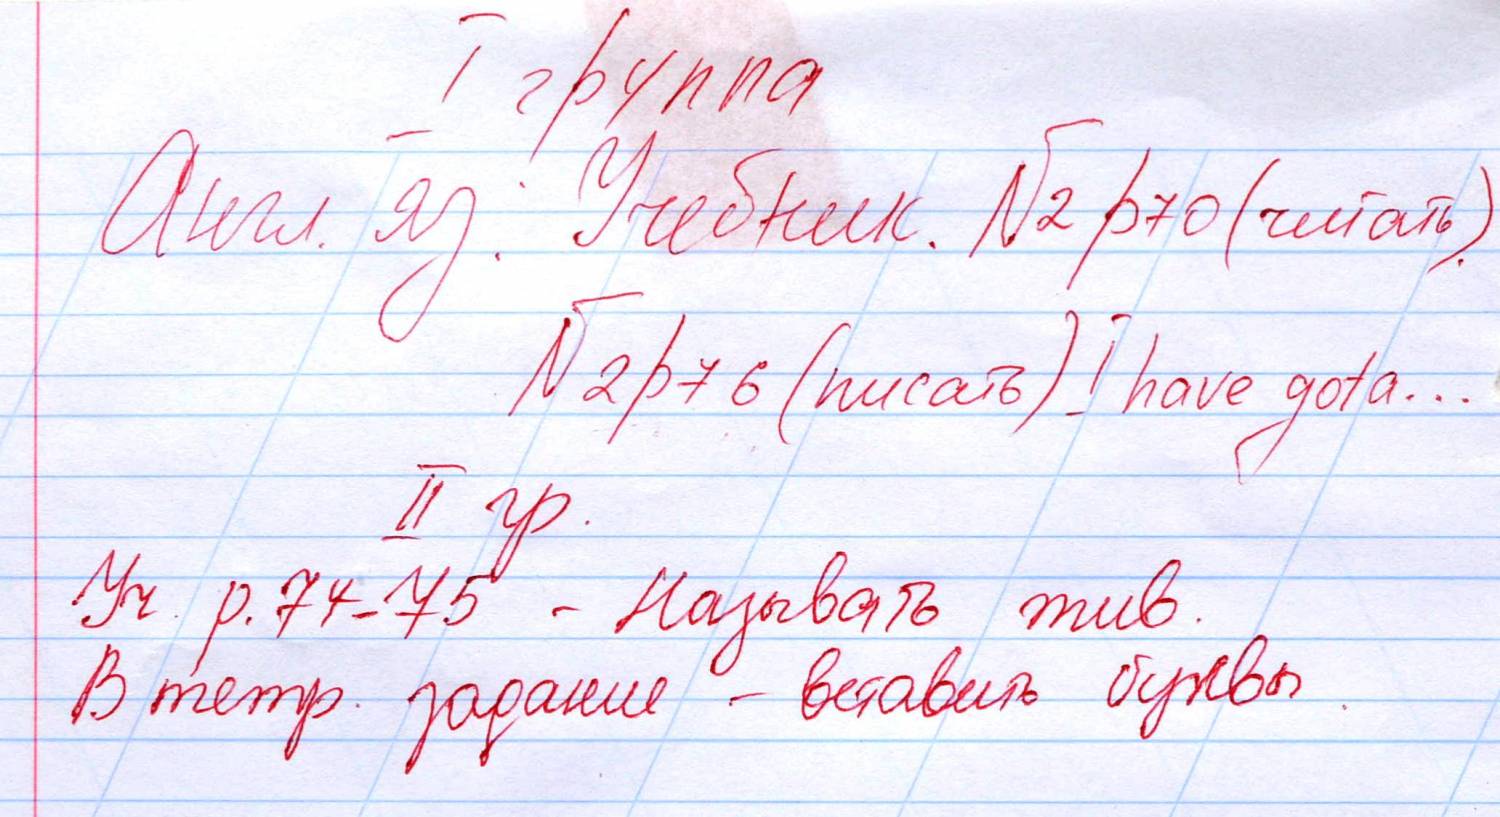 I группа
Англ. яз. Учебник. N2 p70 (читать).
N2 p76 (писать) I have got a...
II гр.
Уч. p. 74-75 - Называть жив.
В тетр. задание - вставить буквы.